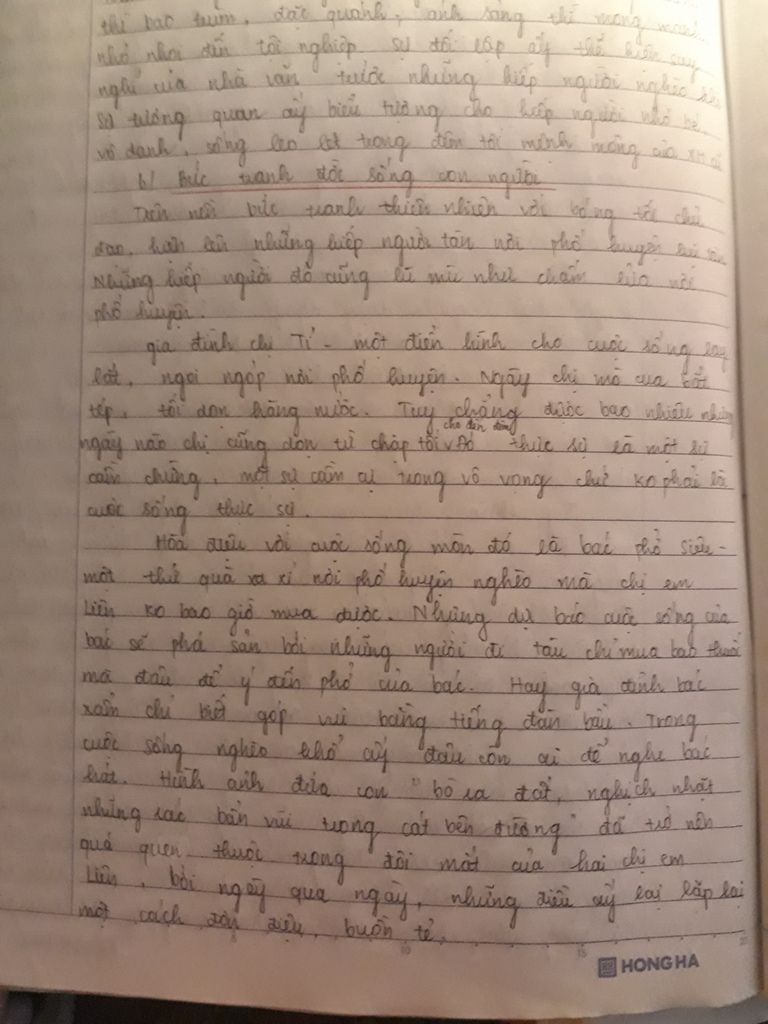 thì bao trùm, đặc quánh, ánh sáng thì mong manh
nhỏ nhoi đến tội nghiệp. Sự đối lập ấy thể hiện suy
nghĩ của nhà văn trước những kiếp người nghèo khổ
Sự tương quan ấy biểu tượng cho kiếp người nhỏ bé
vô danh, sống leo lét trong đêm tối mênh mông của XH cũ
b/ Bức tranh đời sống con người
Trên nền bức tranh thiên nhiên với bóng tối chủ
đạo, hiện lên những kiếp người tàn nơi phố huyện lụi tàn
Những kiếp người đó cũng lù mù như chấm lửa nơi
phố huyện.
gia đình chị Tí - một điển hình cho cuộc sống lay
lắt, ngoi ngóp nơi phố huyện. Ngày chị mò cua bắt
tép, tối dọn hàng nước. Tuy chẳng được bao nhiêu nhưng
ngày nào chị cũng dọn từ chập tối v cho đến đêm Đó thực sự là một sự
cầm chừng, một sự cầm cự trong vô vọng chứ ko phải là
cuộc sống thực sự.
Hòa điệu với cuộc sống mòn đó là bác phở Siêu -
một thứ quà xa xỉ nơi phố huyện nghèo mà chị em
Liên ko bao giờ mua được. Những dự báo cuộc sống của
bác sẽ phá sản bởi những người đi tàu chỉ mua bao thuốc
mà đâu để ý đến phở của bác. Hay gia đình bác
xẩm chỉ biết góp vui bằng tiếng đàn bầu. Trong
cuộc sống nghèo khổ ấy đâu còn ai để nghe bác
hát. Hình ảnh đứa con "bò ra đất, nghịch nhặt
những rác bẩn vùi trong cát bên đường" đã trở nên
quá quen thuộc trong đôi mắt của hai chị em
Liên, bởi ngày qua ngày, những điều ấy lại lặp lại
một cách đơn điệu, buồn tẻ.
10 15 20
HONG HA